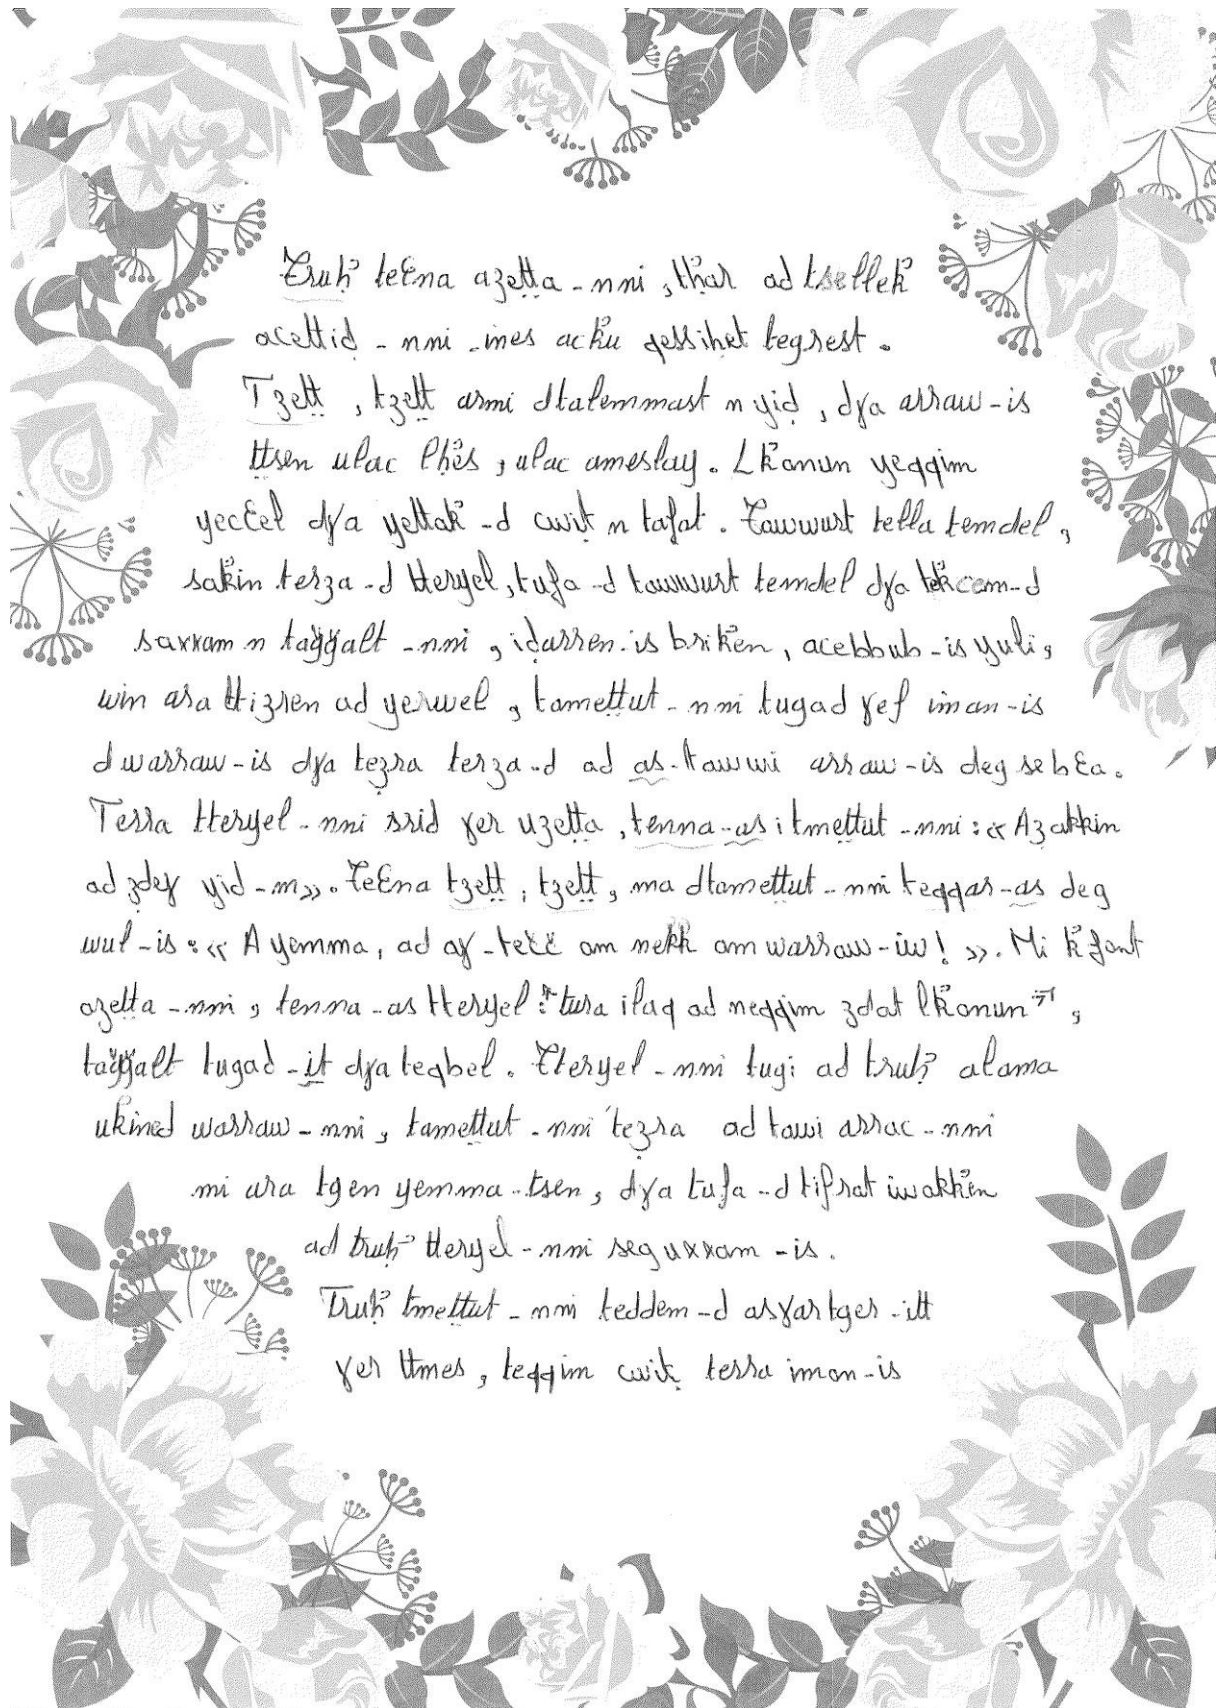 Truḥ teɛna azeṭṭa - nni , tḥar ad tsellek̆
acettiḍ - nni - ines ack̆u qessiḥet tegrest .
Tẓeṭṭ , tẓeṭṭ armi dtalemmast n yiḍ , dɣa arraw - is
ttsen ulac lḥes , ulac ameslay . Lk̆anun yeqqim
yecɛel dɣa yettak̆ - d cwiṭ n tafat . Tawwurt tella temdel ,
sak̆in terza - d tteryel , tufa - d tawwurt temdel dɣa tek̆cem - d
s axxam n taǧǧalt - nni , iḍarren - is brik̆en , acebbub - is yuli ,
win ara ttiẓren ad yerwel , tameṭṭut - nni tugad ɣef iman - is
d warraw - is dɣa teẓra terza - d ad as - ttawwi arraw - is deg sebɛa .
Terra tteryel - nni srid ɣer uẓeṭṭa , tenna - as i tmeṭṭut - nni : « Azakkin
ad ẓdeɣ yid - m » . Teɛna tẓeṭṭ , tẓeṭṭ , ma dtameṭṭut - nni teqqar - as deg
wul - is : « A yemma , ad aɣ - tečč am nekk am warraw - iw ! » . Mi k̆fant
azeṭṭa - nni , tenna - as tteryel : " tura ilaq ad neqqim zdat lk̆anun " ,
taǧǧalt tugad - iṭ dɣa teqbel . Tteryel - nni tugi ad truḥ alama
ukined warraw - nni , tameṭṭut - nni teẓra ad tawi arrac - nni
mi ara tgen yemma - tsen , dɣa tufa - d tifrat iwakk̆en
ad truḥ tteryel - nni seg uxxam - is .
Truḥ tmeṭṭut - nni teddem - d asɣar tger - itt
ɣer ttmes , teqqim cwiṭ terra iman - is